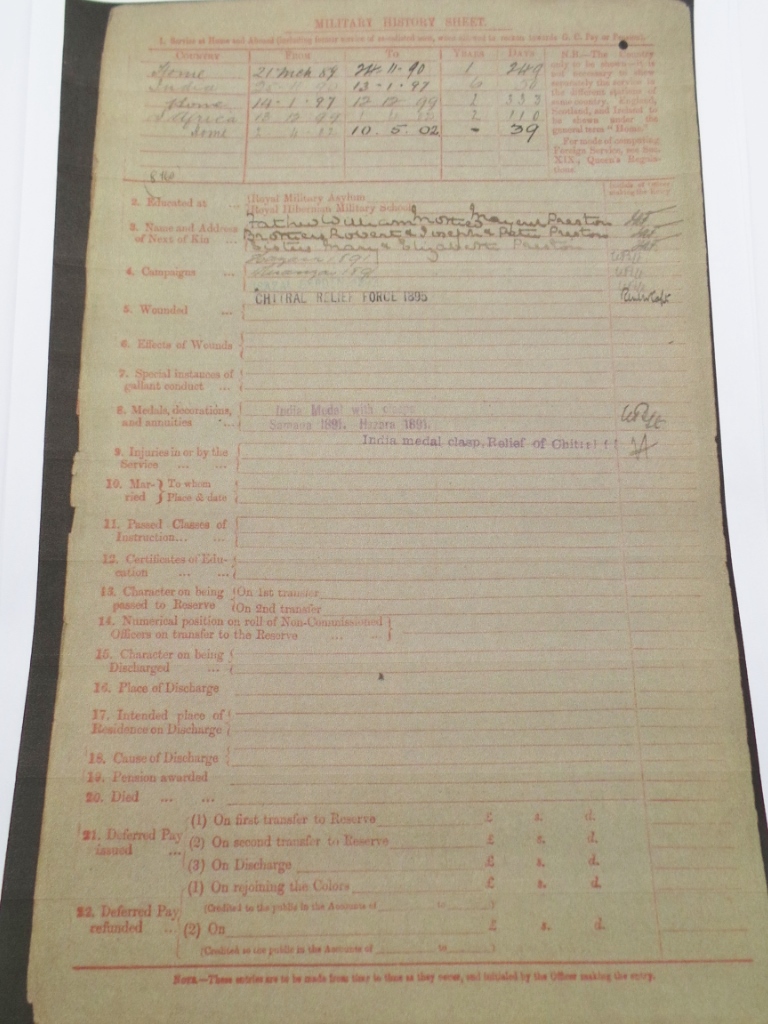 MILITARY HISTORY SHEET.
COUNTRY FROM TO YEARS DAYS
Home 21 Mch 89 24-11-90 1 249
India 25-11-90 13-1-97 6 50
Home 14-1-97 12 12 99 2 333
S Africa 13 12 99 2 110
Home 10. 5. 02 - 39
N.B.—The Country only to be shown, it is not necessary to show separately the service in the different stations of same country, England, Scotland, and Ireland to be shown under the general term "Home."
For mode of computing Foreign Service, see Sec. XIX., Queen's Regulations.
2. Educated at ... Royal Military Asylum
Royal Hibernian Military School
3. Name and Address of Next of Kin ... Father William Preston
Brothers Robert & Joseph & Peter Preston
Sisters Mary & Elizabeth Preston
4. Campaigns ... Hazara 1891
CHITRAL RELIEF FORCE 1895
5. Wounded ...
6. Effects of Wounds
7. Special instances of gallant conduct ...
8. Medals, decorations, and annuities ... India Medal with clasps
Samana 1891. Hazara 1891.
India medal clasp, Relief of Chitral
9. Injuries in or by the Service ... ...
10. Married To whom
Place & date
11. Passed Classes of Instruction... ...
12. Certificates of Education ... ...
13. Character on being passed to Reserve On 1st transfer
On 2nd transfer
14. Numerical position on roll of Non-Commissioned Officers on transfer to the Reserve ... ...
15. Character on being Discharged ...
16. Place of Discharge
17. Intended place of Residence on Discharge
18. Cause of Discharge
19. Pension awarded
20. Died ... ...
21. Deferred Pay issued ... (1) On first transfer to Reserve £ s. d.
(2) On second transfer to Reserve £ s. d.
(3) On Discharge £ s. d.
22. Deferred Pay refunded ... (1) On rejoining the Colors £ s. d.
(Credited to the public in the Accounts of to )
(2) On £ s. d.
(Credited to the public in the Accounts of to )
NOTE.—These entries are to be made from time to time as they occur, and initialed by the Officer making the entry.